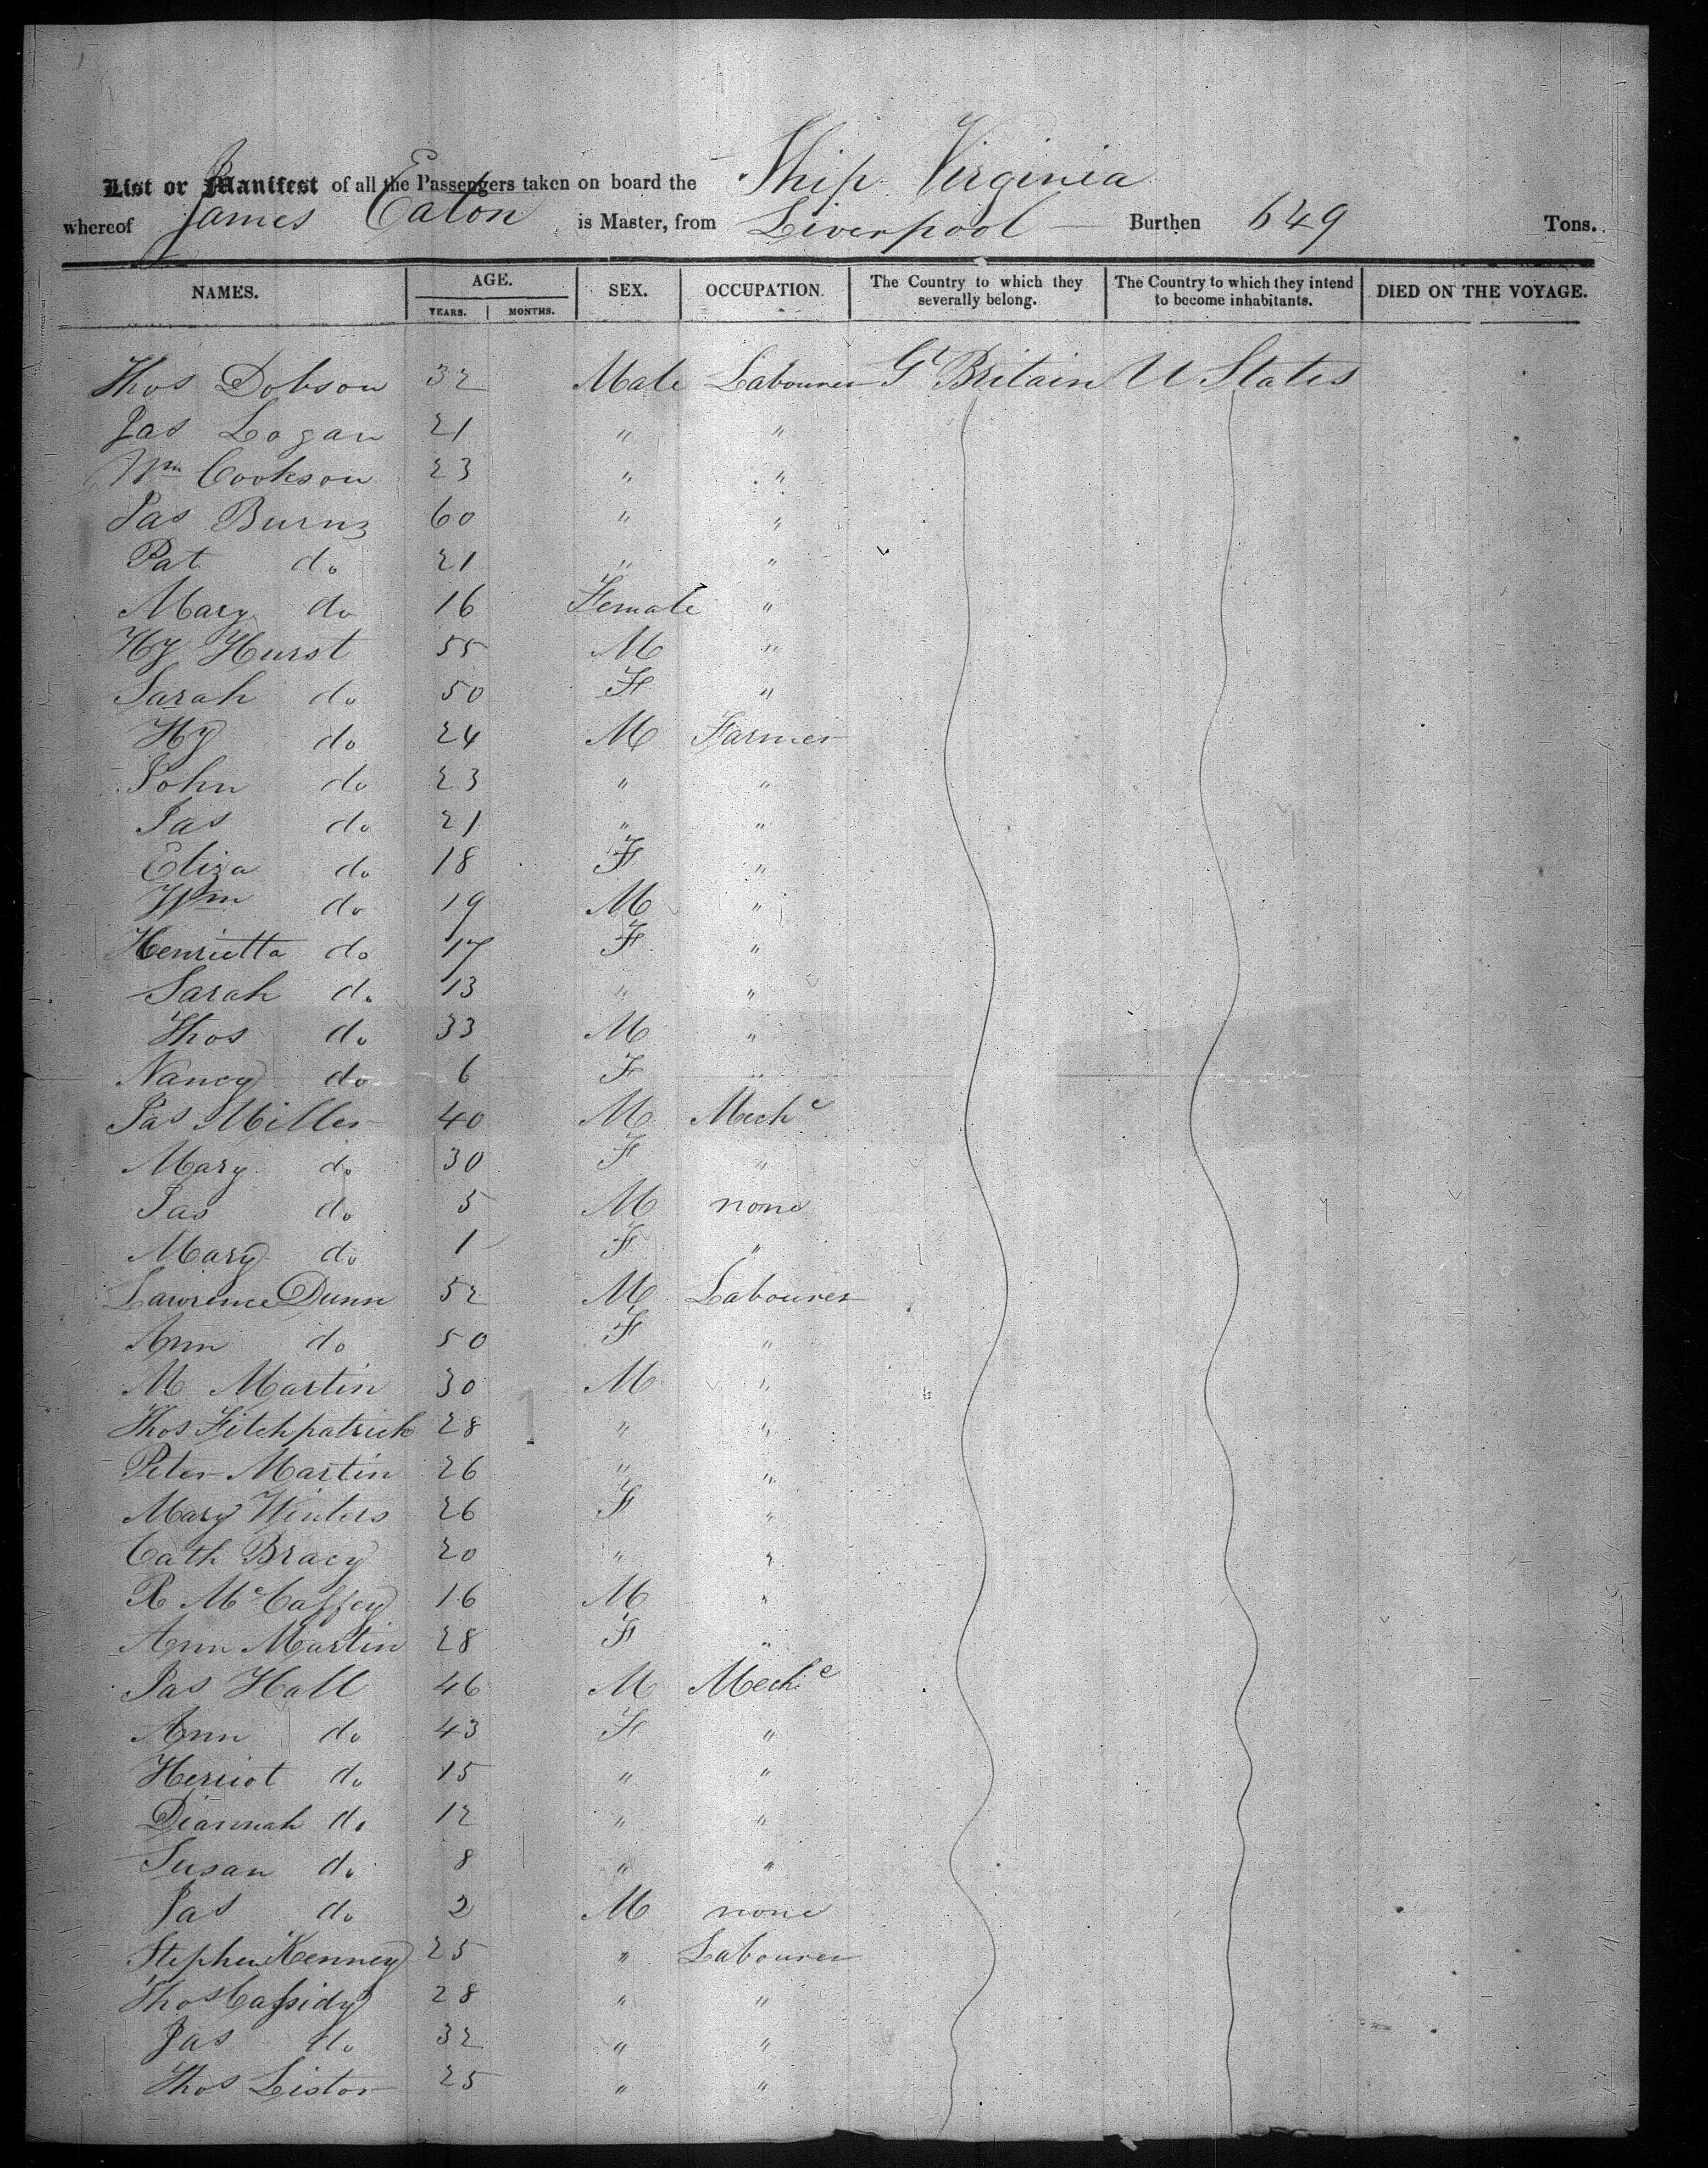 List or Manifest of all the Passengers taken on board the Ship Virginia
whereof James Eaton is Master, from Liverpool Burthen 649 Tons.
NAMES. AGE. SEX. OCCUPATION. The Country to which they severally belong. The Country to which they intend to become inhabitants. DIED ON THE VOYAGE.
YEARS. MONTHS.
Thos Dobson 32 Male Labourer Gt Britain U States
Jas Logan 21 " "
Wm Cookson 23 " "
Jas Burns 60 " "
Pat do 21 " "
Mary do 16 Female "
Hy Hurst 55 M "
Sarah do 50 F "
Hy do 24 M Farmer
John do 23 " "
Jas do 21 " "
Eliza do 18 F "
Wm do 19 M "
Henrietta do 17 F "
Sarah do 13 " "
Thos do 33 M "
Nancy do 6 F "
Jas Miller 40 M Mechc
Mary do 30 F "
Jas do 5 M none
Mary do 1 F "
Lawrence Dunn 52 M Labourer
Ann do 50 F "
M Martin 30 M "
Thos Fitchpatrick 28 " "
Peter Martin 26 " "
Mary Winters 26 F "
Cath Bracy 20 " "
R McCaffey 16 M "
Ann Martin 28 F "
Jas Hall 46 M Mechc
Ann do 43 F "
Herriot do 15 " "
Diannah do 12 " "
Susan do 8 " "
Jas do 2 M none
Stephen Kenney 25 " Labourer
Thos Cassidy 28 " "
Jas do 32 " "
Thos Listor 25 " "